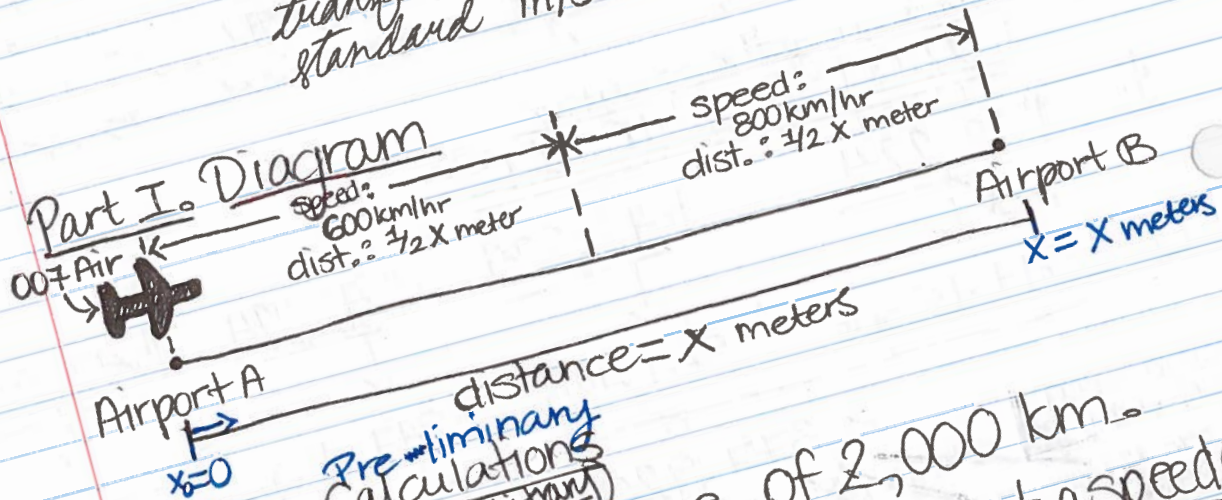 standard
Part I. Diagram
speed:
600km/hr
dist.: 1/2 X meter
speed:
800km/hr
dist.: 1/2 X meter
007 Air
Airport A
Airport B
x = X meters
distance = X meters
x₀=0
Pre-liminary
Calculations
of 2,000 km.
speed